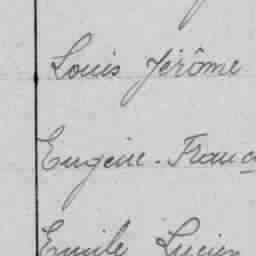 Louis Jérôme
Eugène-Franc
Emile Lucien